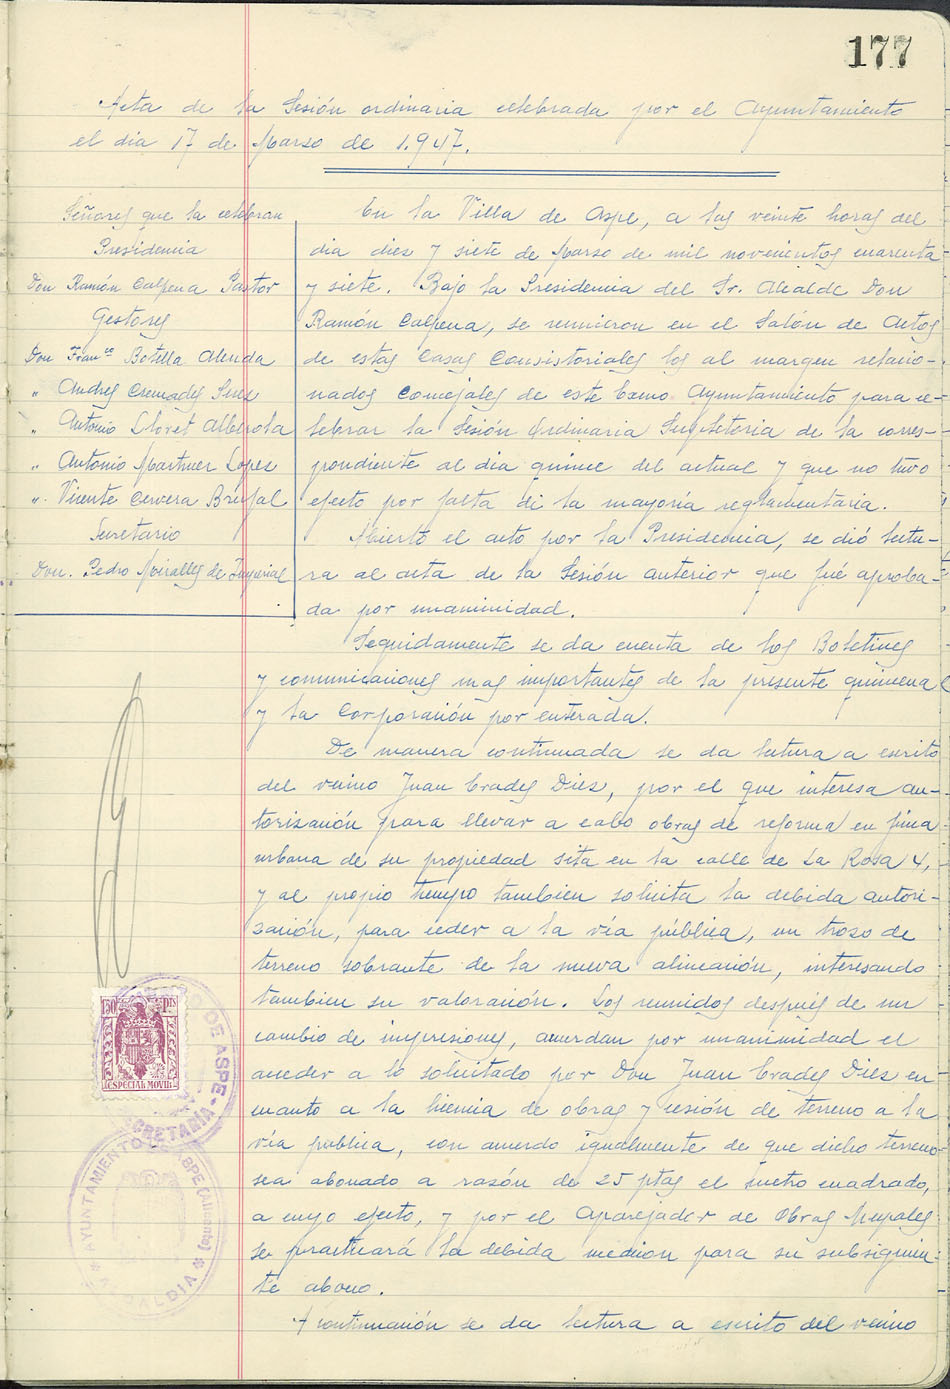 177
Acta de la Sesión ordinaria celebrada por el Ayuntamiento
el dia 17 de Marzo de 1.947.
Señores que la celebran
Presidencia
Don Ramón Calpena Pastor
Gestores
Don Franco Botella Alenda
" Andres Cremades
" Antonio Lloret Alberola
" Antonio Martinez Lopez
" Vicente Cervera Brufal
Secretario
Don. Pedro Miralles de Imperial
En la Villa de Aspe, a las veinte horas del
dia diez y siete de Marzo de mil novecientos cuarenta
y siete. Bajo la Presidencia del Sr. Alcalde Don
Ramón Calpena, se reunieron en el Salón de Actos
de estas Casas Consistoriales los al margen relacio-
nados Concejales de este Excmo Ayuntamiento para ce-
lebrar la Sesión Ordinaria Supletoria de la corres-
pondiente al dia quince del actual y que no tuvo
efecto por falta de la mayoría reglamentaria.
Abierto el acto por la Presidencia, se dió lectu-
ra al acta de la Sesión anterior que fué aproba-
da por unanimidad.
Seguidamente se da cuenta de los Boletines
y comunicaciones mas importantes de la presente quincena
y la Corporación por enterada.
De manera continuada se da lectura a escrito
del vecino Juan Prades Diez, por el que interesa au-
torización para llevar a cabo obras de reforma en finca
urbana de su propiedad sita en la calle de La Rosa 4,
y al propio tiempo tambien solicita la debida autori-
zación, para ceder a la vía pública, un trozo de
terreno sobrante de la nueva alineación, interesando
tambien su valoración. Los reunidos después de un
cambio de impresiones, acuerdan por unanimidad el
acceder a lo solicitado por Don Juan Prades Diez en
cuanto a la licencia de obras y cesión de terreno a la
vía pública, con acuerdo igualmente de que dicho terreno
sea abonado a razón de 25 ptas el metro cuadrado,
a cuyo efecto, y por el Aparejador de Obras Mupales
se practicará la debida medicion para su subsiguien-
te abono.
A continuación se da lectura a escrito del vecino
1'50 Pts
ESPECIAL MOVIL
DE ASPE
SECRETARIA
AYUNTAMIENTO DE ASPE (Alicante)
ALCALDIA